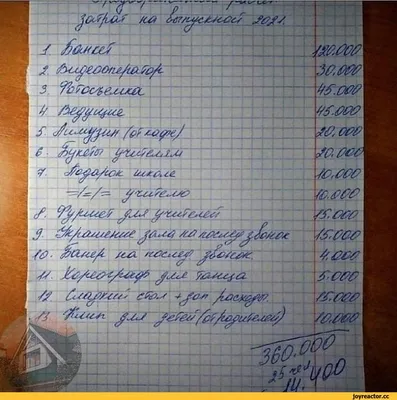 расчет
затрат на выпускной 2021.
1 Банкет 120.000
2. Видеооператор 30.000
3 Фотосъемка 45.000
4. Ведущие 45.000
5. Лимузин (от кафе) 20.000
6. Букеты учителям 20.000
7. Подарок школе 10.000
=/=/= учителю 10.000
8. Фуршет для учителей 15.000
9. Украшение зала на послед звонок 15.000
10. Банер на послед звонок 4.000
11. Хореограф для танца 5.000
12. Сладкий стол + доп расходы. 15.000
13. Клип для детей (от родителей) 10.000
360.000
25 чел
14.400
joyreactor.cc